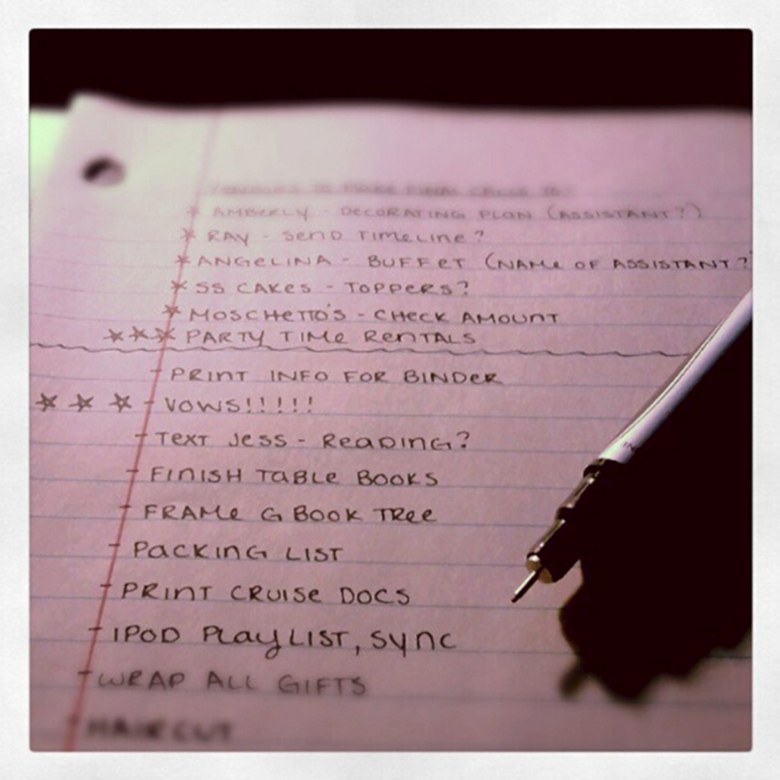 VENDORS TO MAKE FINAL CALLS TO:
* AMBERLY - DECORATING PLAN (ASSISTANT?)
* RAY - SEND TIMELINE?
* ANGELINA - BUFFET (NAME OF ASSISTANT?
* SS CAKES - TOPPERS?
* MOSCHETTO'S - CHECK AMOUNT
*** PARTY TIME RENTALS
- PRINT INFO FOR BINDER
* * * - VOWS!!!!!
- TEXT JESS - READING?
- FINISH TABLE BOOKS
- FRAME G BOOK TREE
- PACKING LIST
- PRINT CRUISE DOCS
- IPOD PLAYLIST, SYNC
- WRAP ALL GIFTS
- HAIRCUT